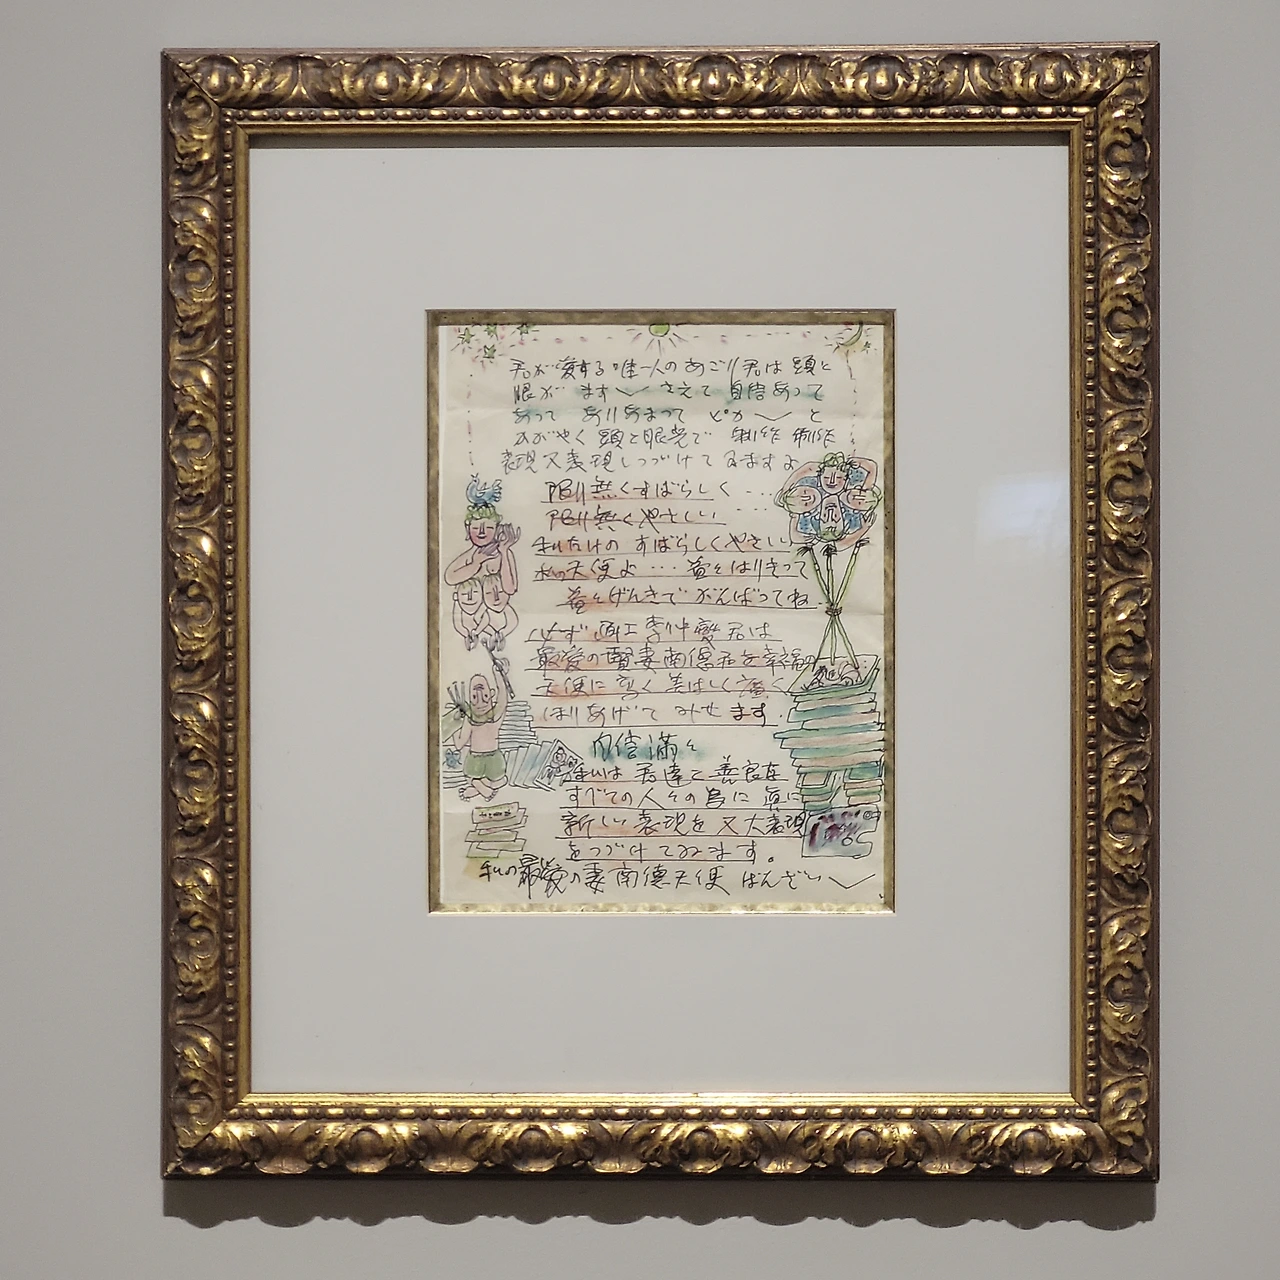 君が愛する唯一人のあごり君は頭と
眼が ます〱 さえて 自信あって
あって ありあまって ピカ〱 と
かがやく 頭と眼光で 制作 制作
表現又表現しつづけてゐますよ
限り無くすばらしく・・・
限り無くやさしい・・・
私だけの すばらしくやさしい
私の天使よ・・・益々はりきって
益々げんきで がんばってね
必ず 画工李仲燮君は
最後の 賢妻南德君を幸福の
天使に 高く 美はしく 廣く
はりあげて みせます
自信満々
私は 君達と 善良な
すべての人々の為に 真に
新しい表現を又大表現
をつづけてゐます。
私の最後の妻南德天使 ばんざい〱